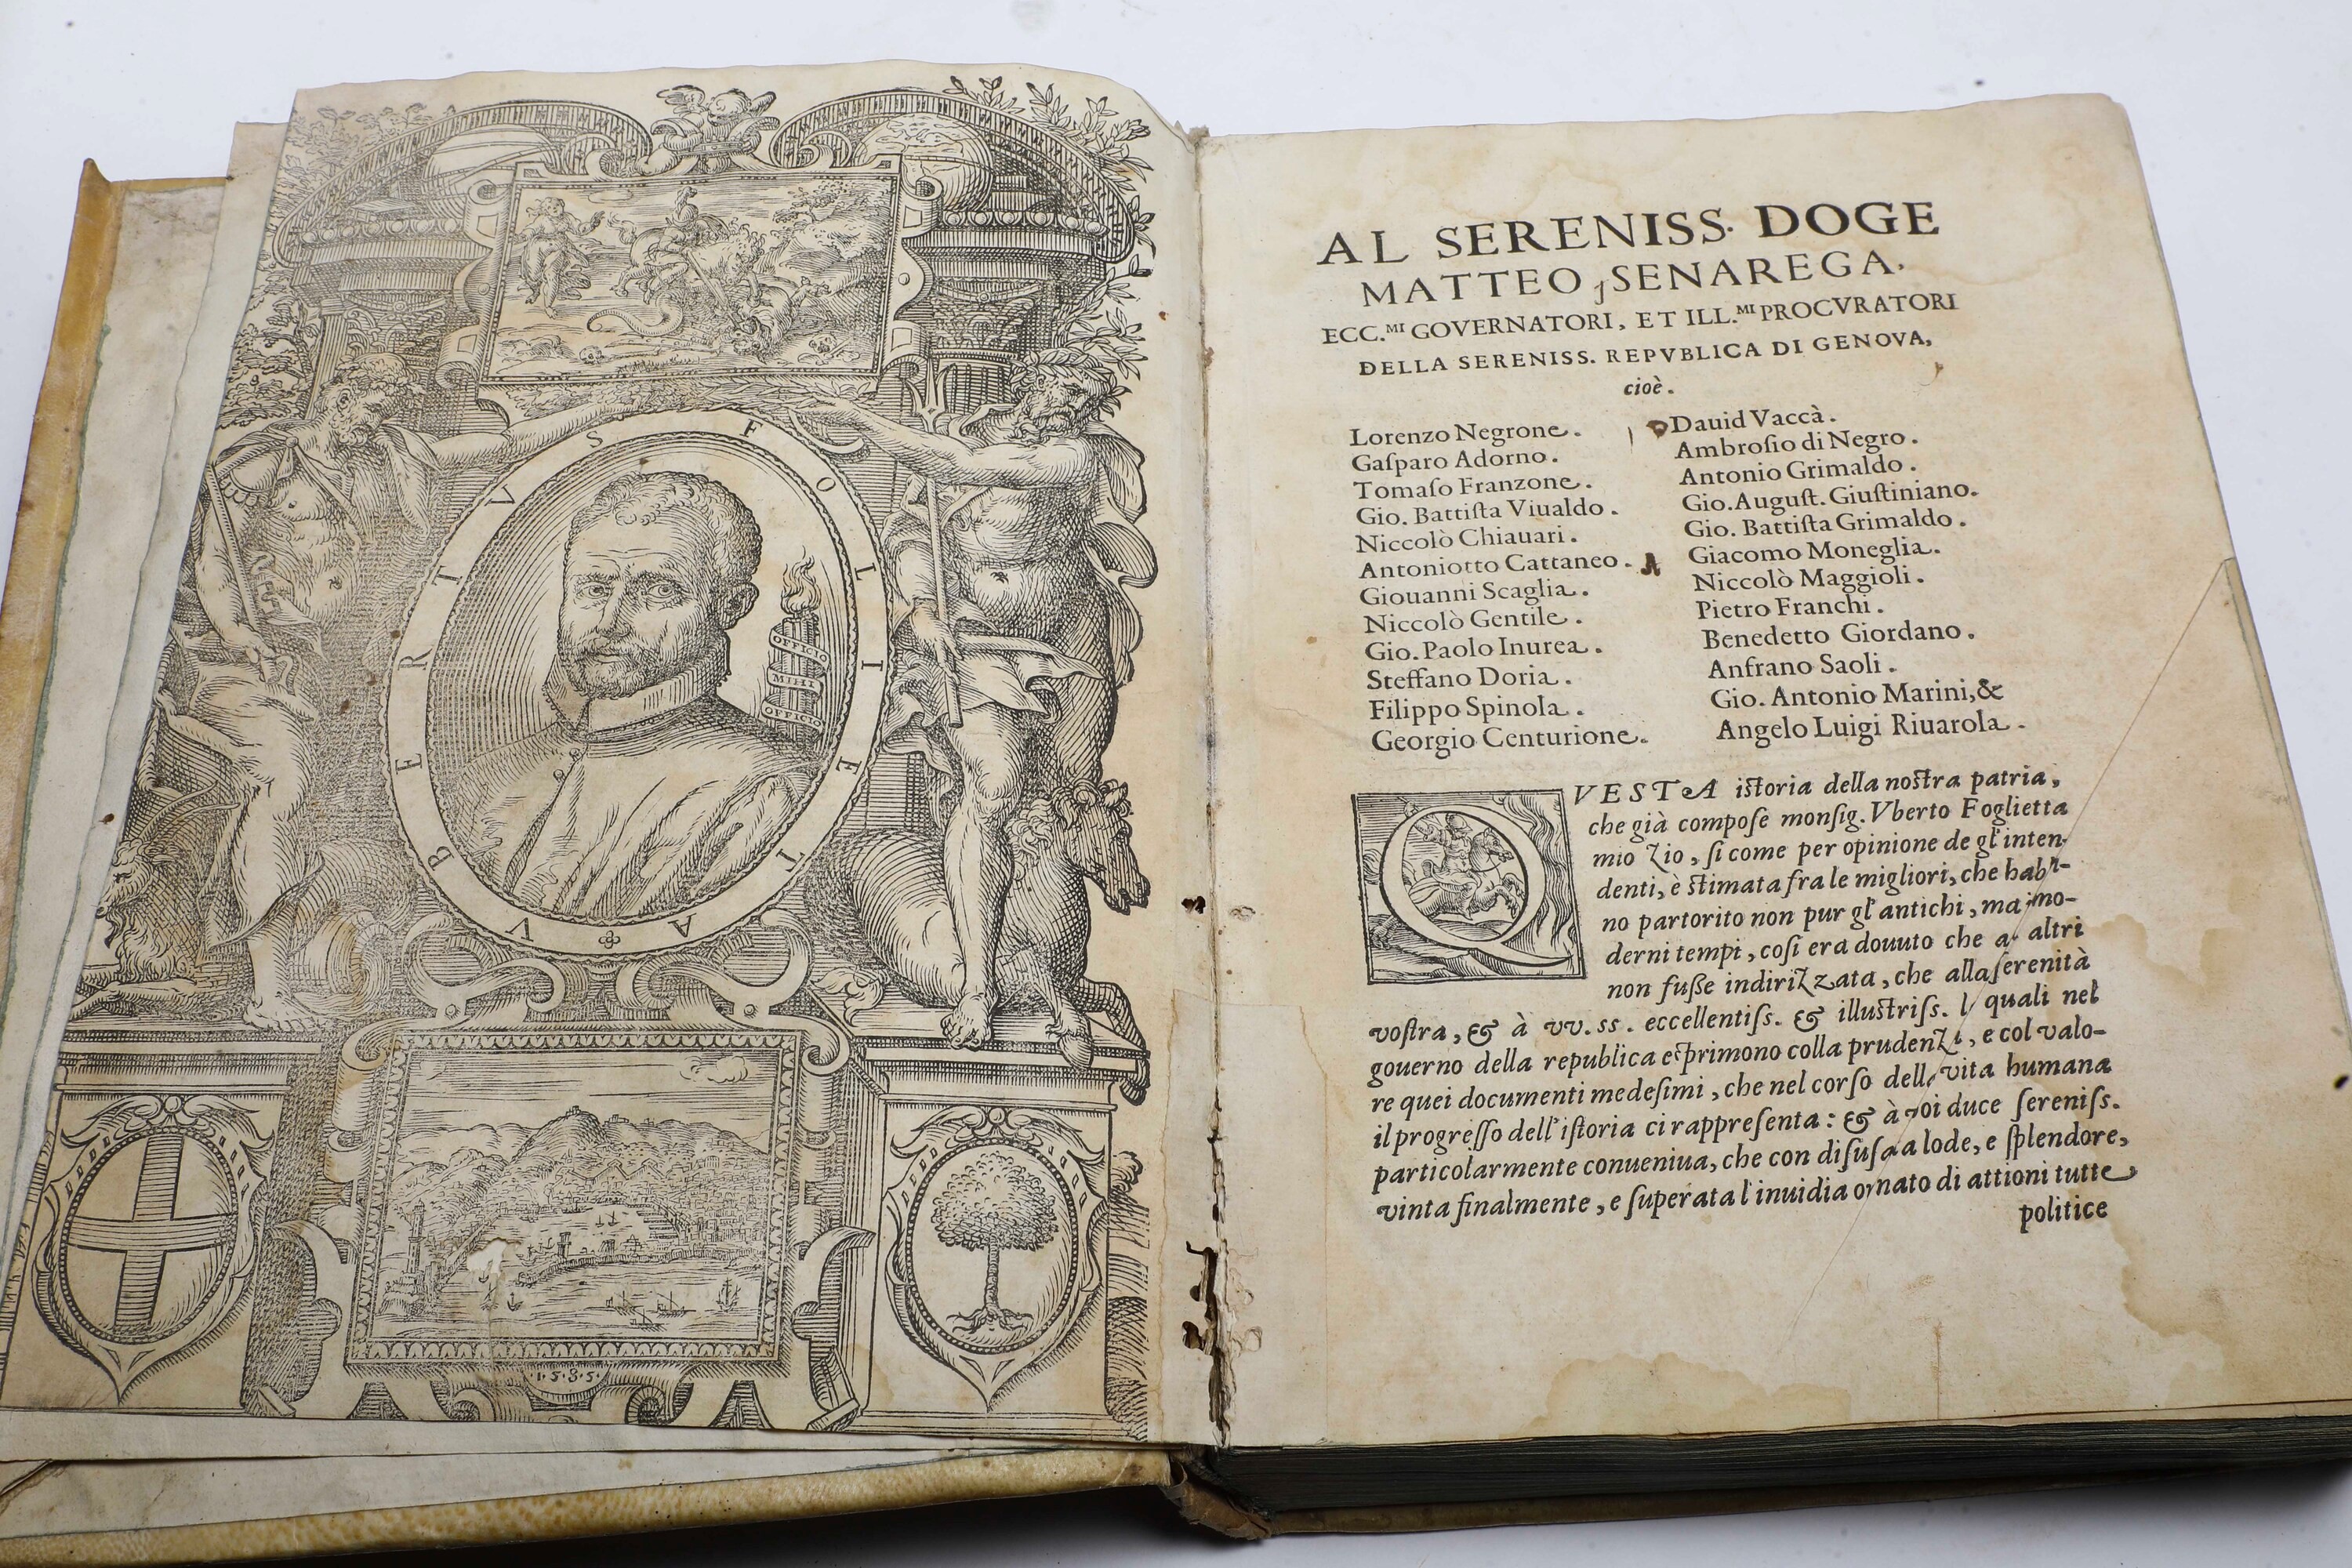 VBERTVS FOLIETTA
OFFICIO
MIHI
OFFICIO
1585
AL SERENISS. DOGE
MATTEO SENAREGA,
ECC.MI GOVERNATORI, ET ILL.MI PROCVRATORI
DELLA SERENISS. REPVBLICA DI GENOVA,
cioè.
Lorenzo Negrone.
Gaſparo Adorno.
Tomaſo Franzone.
Gio. Battiſta Viualdo.
Niccolò Chiauari.
Antoniotto Cattaneo.
Giouanni Scaglia.
Niccolò Gentile.
Gio. Paolo Inurea.
Steffano Doria.
Filippo Spinola.
Georgio Centurione.
Dauid Vaccà.
Ambroſio di Negro.
Antonio Grimaldo.
Gio. Auguſt. Giuſtiniano.
Gio. Battiſta Grimaldo.
Giacomo Moneglia.
Niccolò Maggioli.
Pietro Franchi.
Benedetto Giordano.
Anfrano Saoli.
Gio. Antonio Marini, &
Angelo Luigi Riuarola.
QVESTA iſtoria della noſtra patria,
che già compoſe monſig. Vberto Foglietta
mio zio, ſi come per opinione de gl'inten-
denti, è ſtimata fra le migliori, che habbi-
no partorito non pur gl'antichi, ma i mo-
derni tempi, coſi era douuto che ad altri
non fuſſe indirizzata, che alla ſerenità
voſtra, & à vv. ss. eccellentiſs. & illuſtriſs. i quali nel
gouerno della republica eſprimono colla prudenza, e col valo-
re quei documenti medeſimi, che nel corſo della vita humana
il progreſſo dell'iſtoria ci rappreſenta: & à voi duce ſereniſs.
particolarmente conueniua, che con diſuſata lode, e ſplendore,
vinta finalmente, e ſuperata l'inuidia ornato di attioni tutte
politice